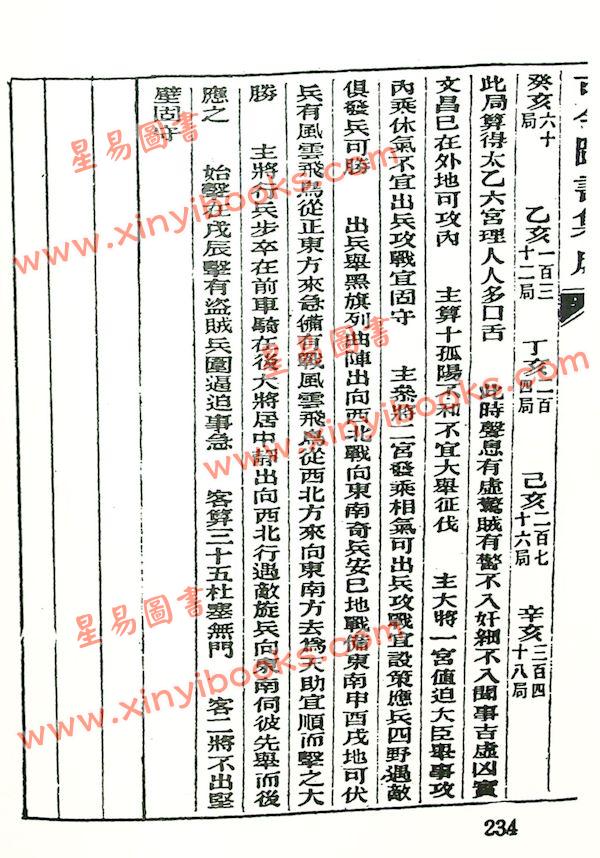 古今圖書集成
癸亥六十局 乙亥一百三十二局 丁亥二百四局 己亥二百七十六局 辛亥三百四十八局
此局算得太乙六宮理人人多口舌 此時聲息有虛驚賊有警不入奸細不入聞事吉虛凶實
文昌巳在外地可攻內 主算十孤陽不和不宜大舉征伐 主大將一宮值迫大臣舉事攻
內乘休氣不宜出兵攻戰宜固守 主參將二宮發乘相氣可出兵攻戰宜設策應兵四野遇敵
俱發兵可勝 出兵舉黑旗列曲陣出向西北戰向東南奇兵安巳地戰備東南申酉戌地可伏
兵有風雲飛鳥從正東方來急備有戰風雲飛鳥從西北方來向東南方去爲天助宜順而擊之大
勝 主將行兵步卒在前車騎在後大將居中靜出向西北行遇敵旋兵向東南伺彼先舉而後
應之 始擊在戌辰擊有盜賊兵圍逼迫事急 客算三十五杜塞無門 客二將不出堅
壁固守
234
星易圖書
www.xinyibooks.com
星易圖書
www.xinyibooks.com
星易圖書
www.xinyibooks.com